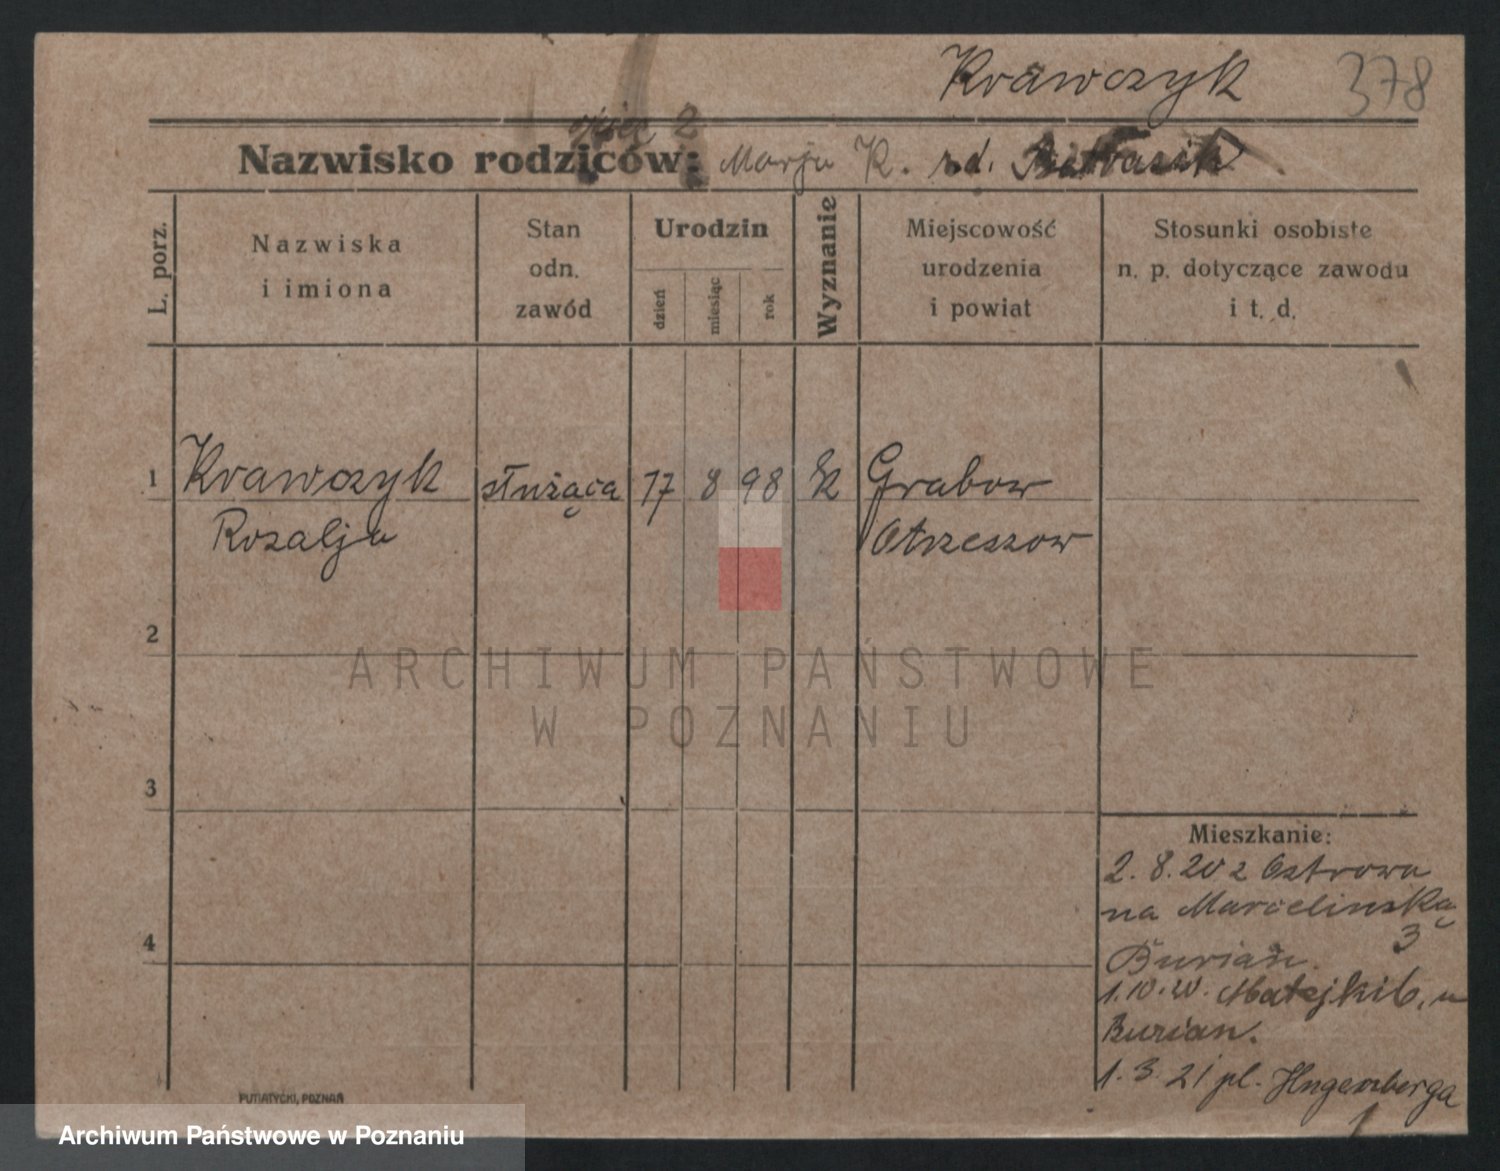 Krawczyk
378
ojciec ?
Nazwisko rodziców: Marja K. rd.
L. porz.
Nazwiska
i imiona
Stan
odn.
zawód
Urodzin
dzień
miesiąc
rok
Wyznanie
Miejscowość
urodzenia
i powiat
Stosunki osobiste
n. p. dotyczące zawodu
i t. d.
1 Krawczyk służąca 17 8 98 k Grabow
Rozalja Otrzeszow
2
ARCHIWUM PAŃSTWOWE
W POZNANIU
3
4
Mieszkanie:
2.8.20 z Ostrowa
na Marcelinską
3
Burian
1.10.20. Matejki 6, u
Burian.
1.3.21 pl.
1
PUTIATYCKI, POZNAŃ
Archiwum Państwowe w Poznaniu